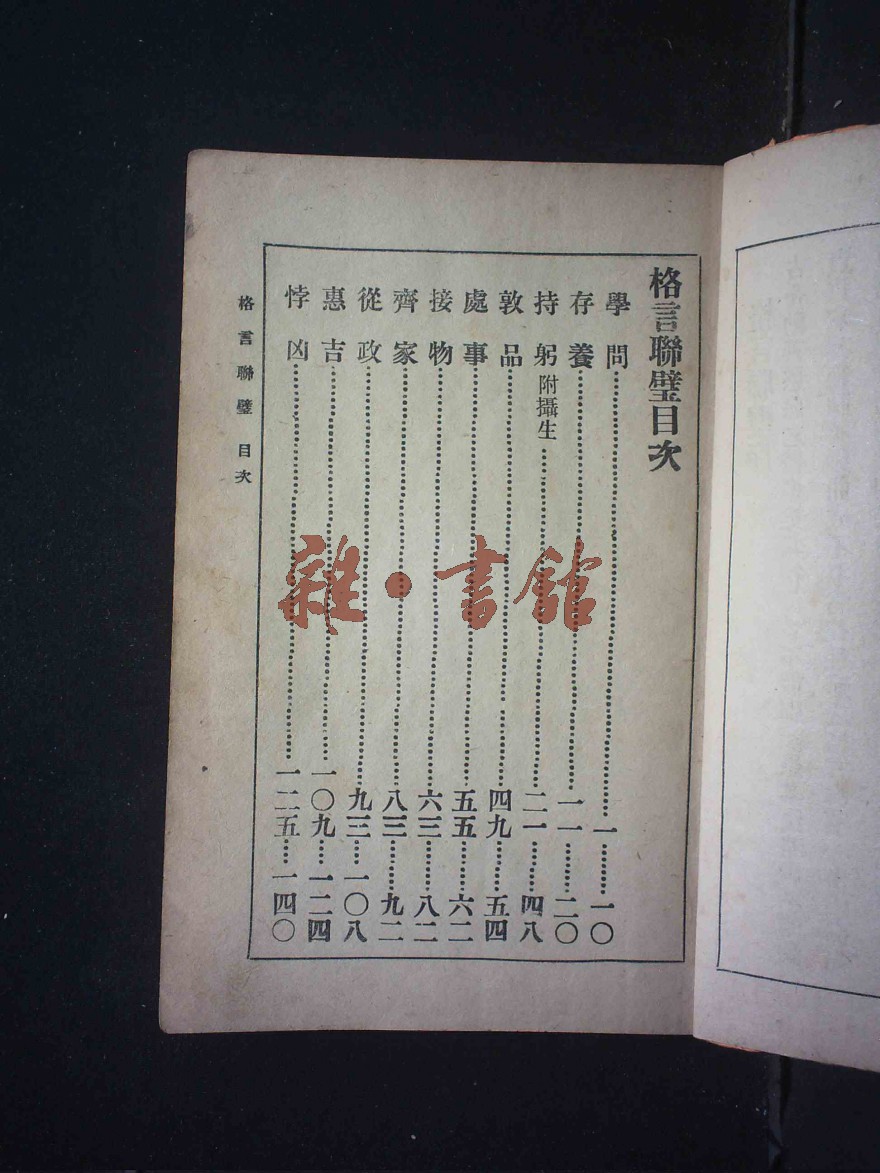 格言聯璧目次
學問……一……一〇
存養……一一……二〇
持躬附攝生……二一……四八
敦品……四九……五四
處事……五五……六二
接物……六三……八二
齊家……八三……九二
從政……九三……一〇八
惠吉……一〇九……一二四
悖凶……一二五……一四〇
格言聯璧 目次
雜·書館